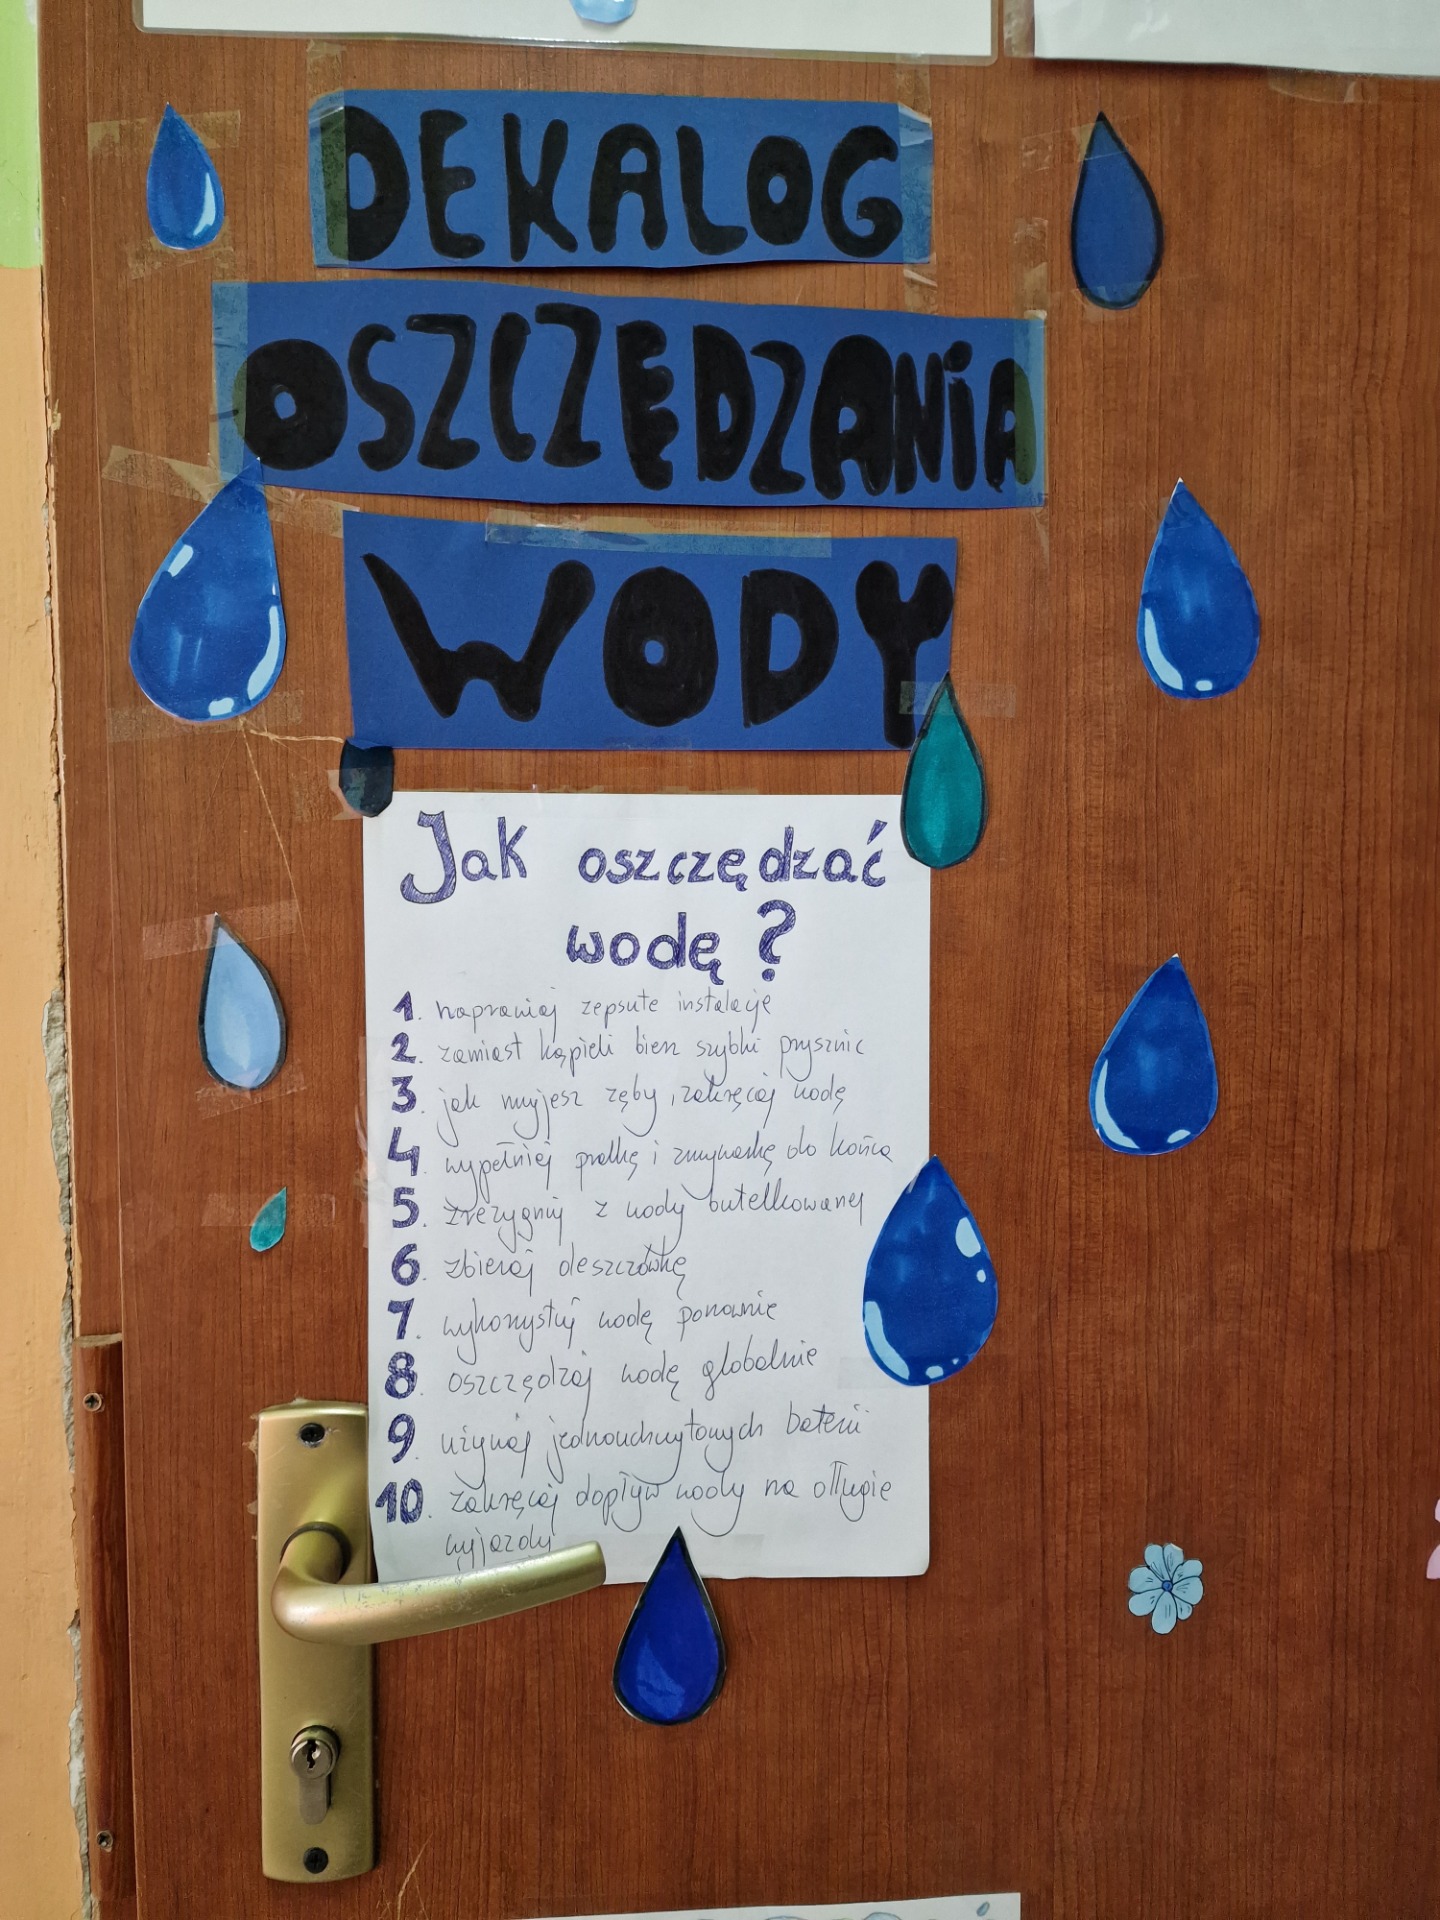 DEKALOG
OSZCZĘDZANIA
WODY
Jak oszczędzać
wodę?
1. naprawiaj zepsute instalacje
2. zamiast kąpieli bierz szybki prysznic
3. jak myjesz zęby, zakręcaj wodę
4. wypełniej pralkę i zmywarkę do końca
5. zrezygnuj z wody butelkowanej
6. zbieraj deszczówkę
7. wykorzystuj wodę ponownie
8. oszczędzaj wodę globalnie
9. używaj jednouchwytowych baterii
10. zakręcaj dopływ wody na długie
wyjazdy